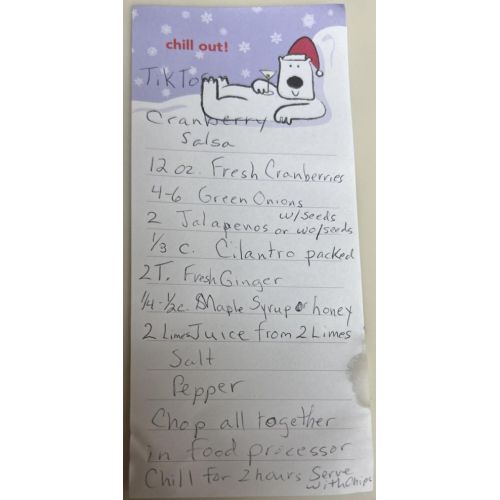 chill out!
TikTok
Cranberry
Salsa
12 oz. Fresh Cranberries
4-6 Green Onions
2 Jalapenos w/seeds or wo/seeds
1/3 c. Cilantro packed
2 T. Fresh Ginger
1/4-1/2c. Maple Syrup or honey
2 Limes Juice from 2 Limes
Salt
Pepper
Chop all together
in food processor
Chill for 2 hours Serve with Chips